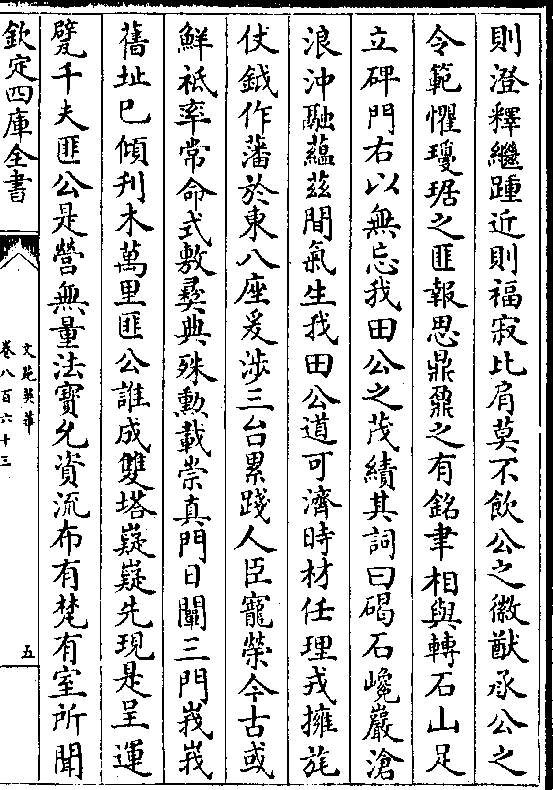 則澄釋繼踵近則福寂比肩莫不飲公之徽猷承公之
令範懼瓊琚之匪報思鼎鼐之有銘聿相與轉石山足
立碑門右以無忘我田公之茂績其詞曰碣石巉巖滄
浪沖融蘊茲間氣生我田公道可濟時材任理戎擁旄
仗鉞作藩於東八座爰渉三台累踐人臣寵榮今古或
鮮祗率常命式敷彞典殊勲載崇真門日闡三門峩峩
舊址已傾刋木萬里匪公誰成雙塔嶷嶷先現是呈運
甓千夫匪公是營無量法寶允資流布有梵有室所聞
欽定四庫全書
文苑英華
卷八百六十三
五